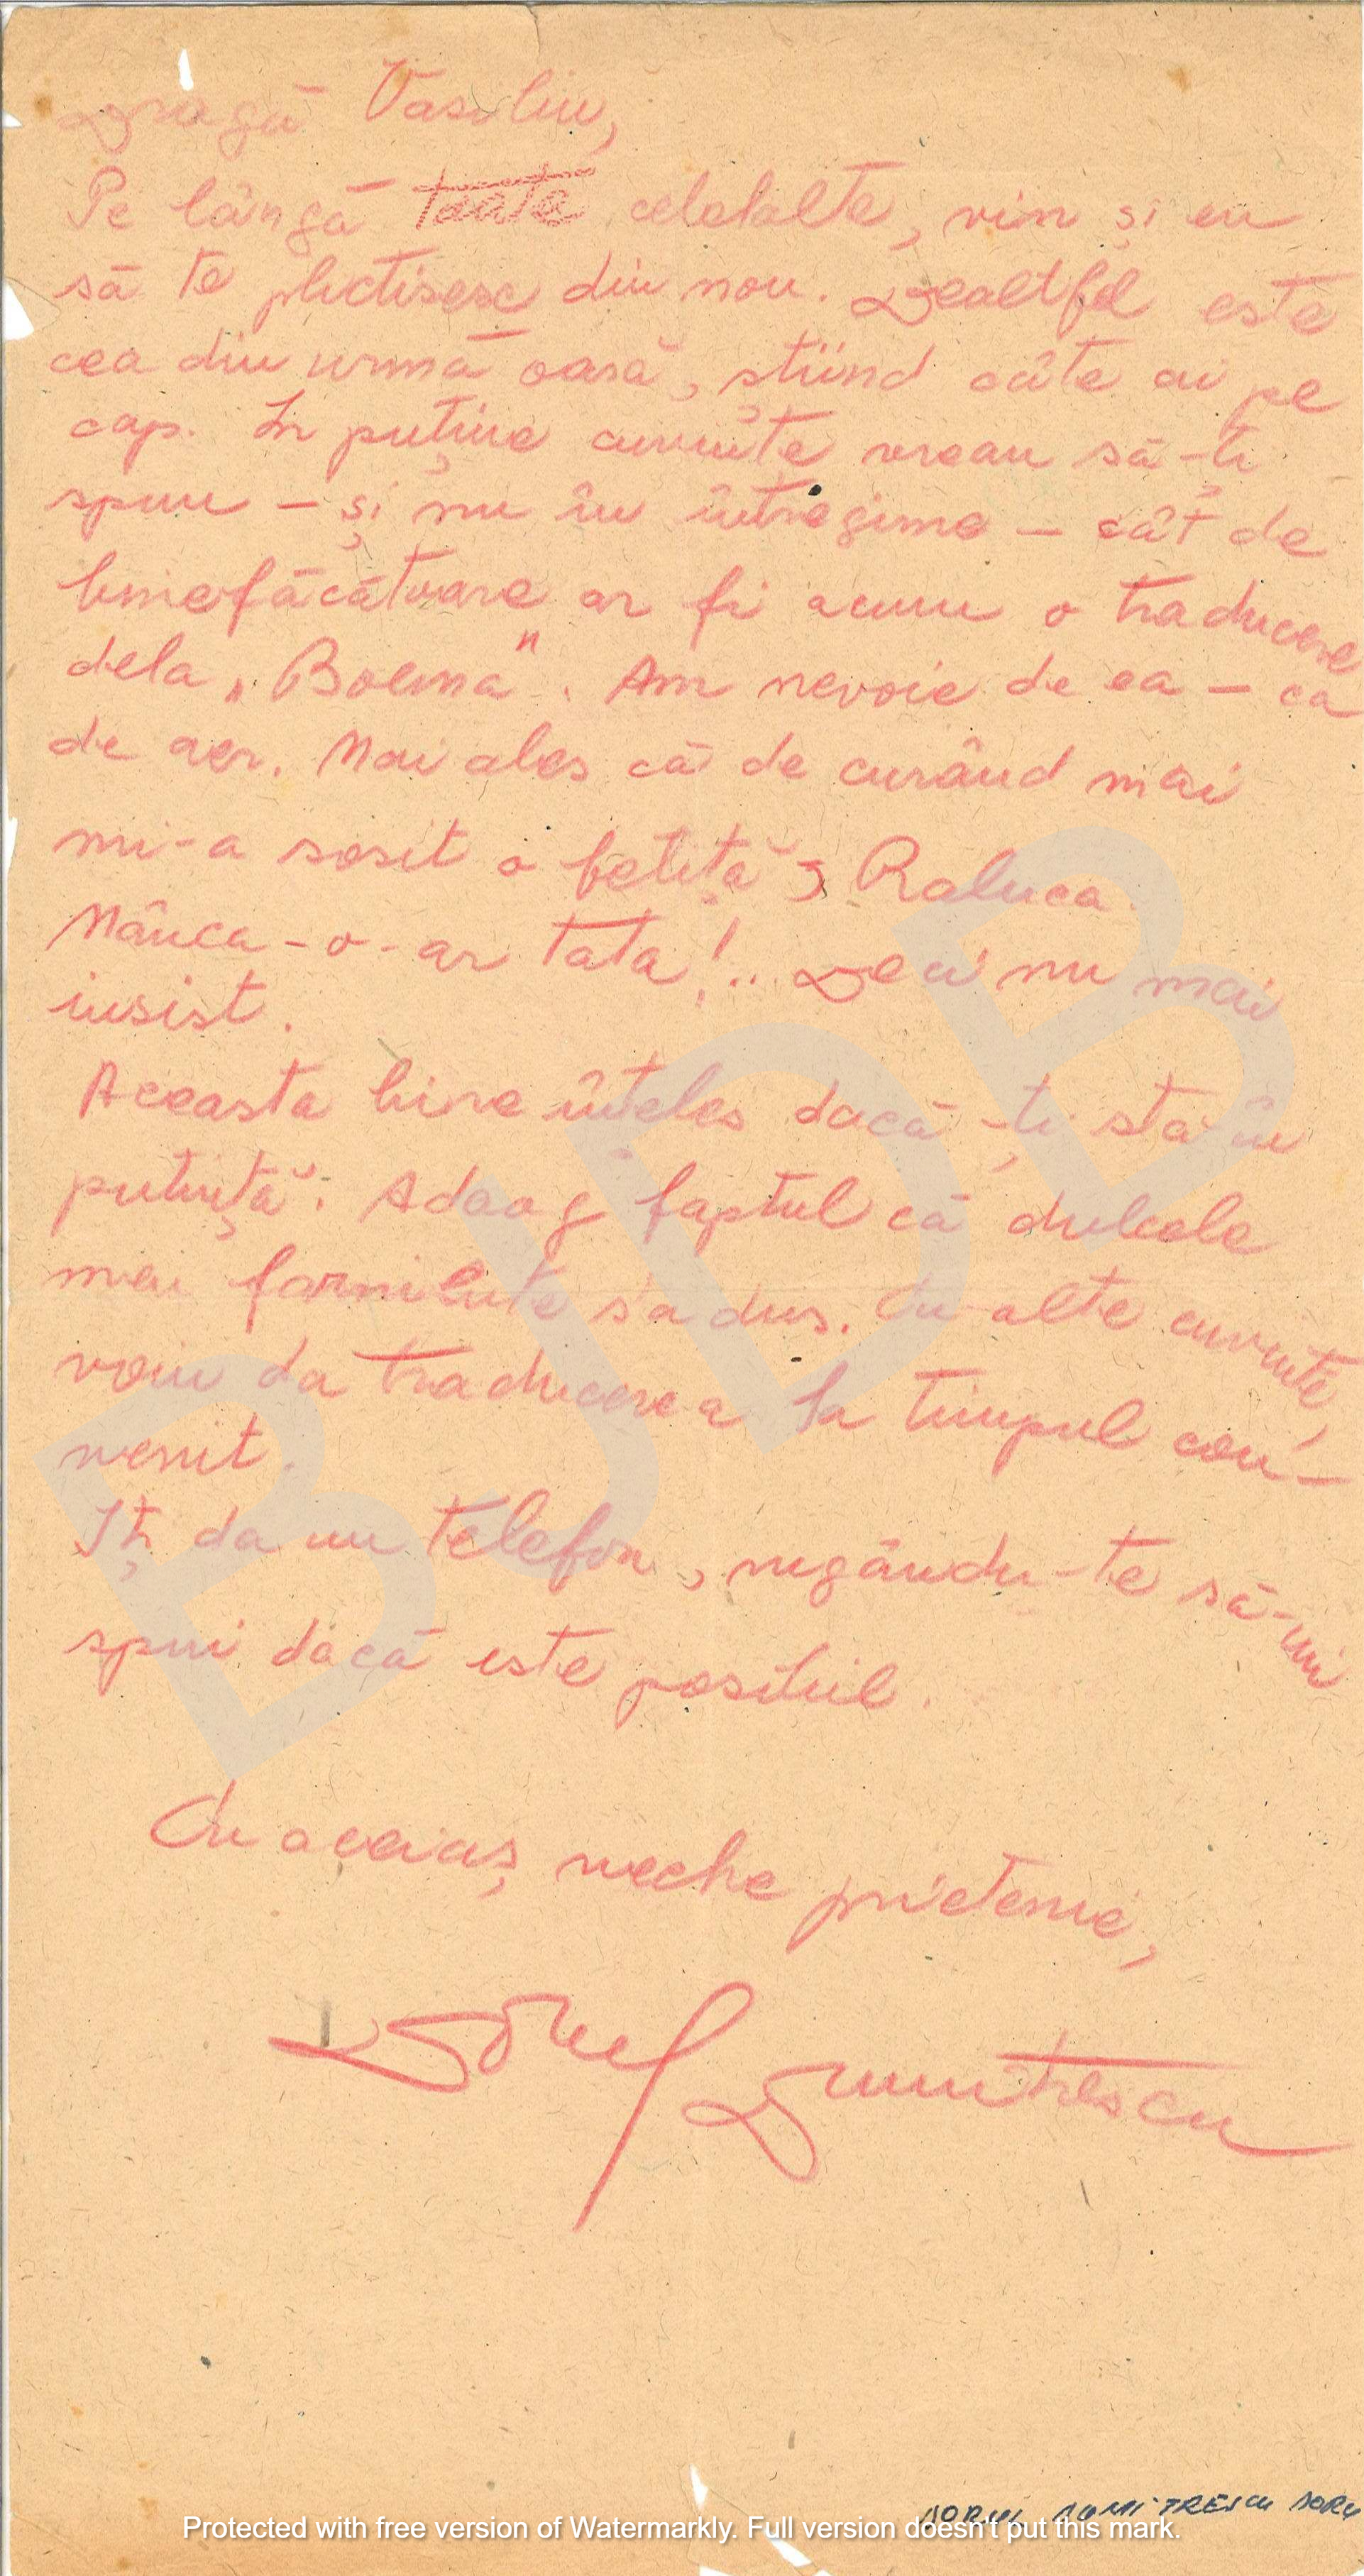 Dragă Vasiliu,
Pe lângă toate celelalte, vin și eu
să te plictisesc din nou. Dealtfel este
cea din urmă oară, știind câte ai pe
cap. In puține cuvinte vreau să-ți
spun – și nu în întregime – cât de
binefăcătoare ar fi acum o traducere
dela „Boema". Am nevoie de ea – ca
de aer. Mai ales că de curând mai
mi-a sosit o fetiță, Raluca.
Mânca-o-ar tata!.. Deci nu mai
insist.
Aceasta bine înțeles dacă-ți sta în
putință. Adaog faptul că dulcele
meu s'a dus. Cu alte cuvinte,
voiu da traducerea la timpul con-
venit.
Iți da un telefon, rugându-te să-mi
spui dacă este posibil.
Cu aceiaș veche prietenie,
Dorul Dumitrescu
DORUL DUMITRESCU DORU
BJDB
Protected with free version of Watermarkly. Full version doesn't put this mark.